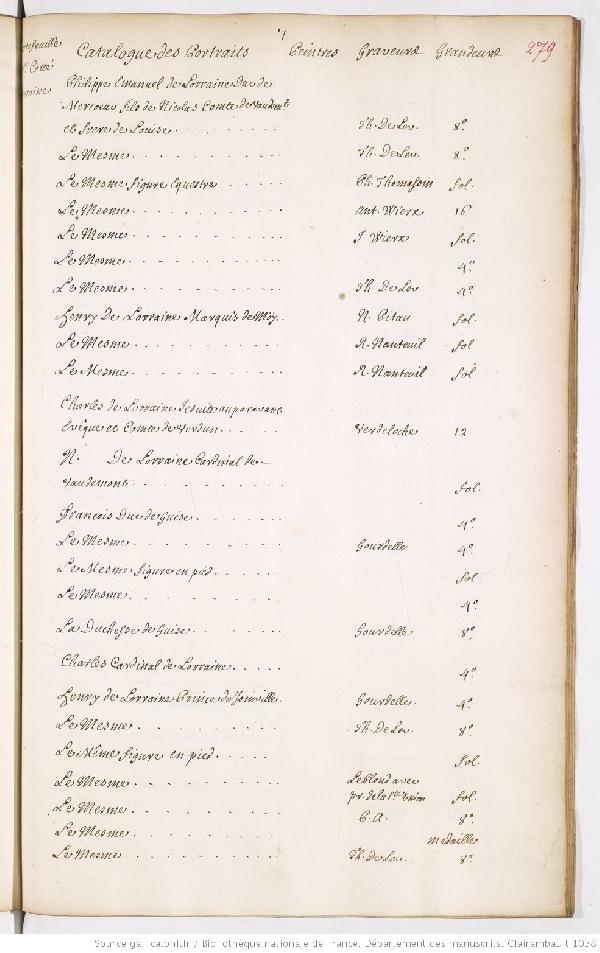 7
Catalogue des Portraits Peintres Graveurs Grandeurs 279
Philippe Emanuel de Lorraine Duc de
Mercoeur fils de Nicolas Comte de Vaudemt
et frere de Louise Th. De Leu 8.°
Le Mesme Th. De Leu 8.°
Le Mesme figure Equestre Ph. Thomassin fol.
Le Mesme Ant. Wierx 16
Le Mesme J Wierx fol.
Le Mesme 4.°
Le Mesme Th. De Leu 4.°
Henry De Lorraine Marquis de Moÿ N. Pitau fol.
Le Mesme R. Nanteuil fol
Le Mesme R. Nanteuil fol
Charles de Lorraine Jesuite auparavant
Evêque et Comte de Verdun Verdeloche 12
N. De Lorraine Cardinal de
Vaudemont fol.
François Duc de Guise 4.°
Le Mesme Gourdelle 4.°
Le Mesme figure en pied fol
Le Mesme 4.°
La Duchesse de Guise Gourdelle 8.°
Charles Cardinal de Lorraine 4.°
Henry de Lorraine Prince de Joinville Gourdelle 4.°
Le Mesme Th. De Leu 8.°
Le Même figure en pied fol.
Le Mesme Leblond avec
pr. de la fol.
Le Mesme 8.°
Le Mesme medaille
Le Mesme Th. de Leu 8.°
Source gallica.bnf.fr / Bibliothèque nationale de France. Département des manuscrits. Clairambault 1038